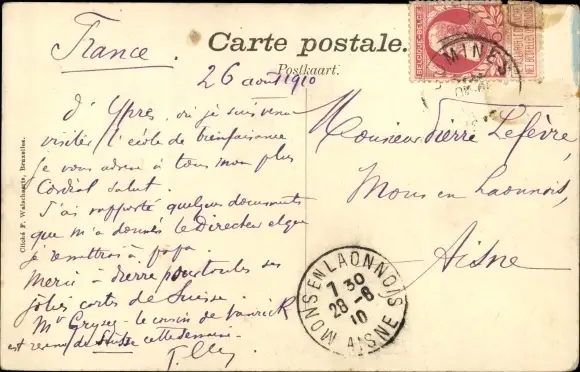 France.
Carte postale.
Postkaart.
26 août 1910
d'Ypres, où je suis venu
visiter l'école de bienfaisance
je vous adresse à tous mon plus
Cordial salut.
J'ai rapporté quelques documents
que m'a donnés le Directeur et que
je remettrai à papa.
Merci à Pierre pour toutes ses
jolies cartes de Suisse.
Mr le cousin de
est revenu de Suisse cette semaine.
Cliché P. Walschaerts, Bruxelles.
BELGIQUE-BELGIË
MINES
Monsieur Pierre Lefèvre,
Mons en Laonnois,
Aisne
MONS EN LAONNOIS
7 30
28-8
10
AISNE